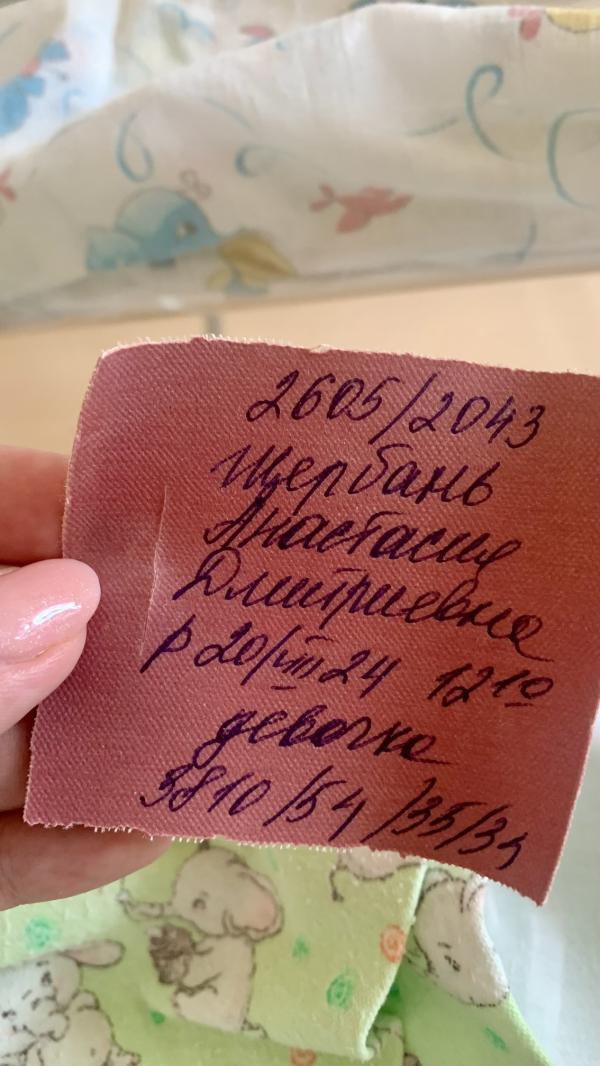 2605/2043
Щербань
Анастасия
Дмитриевна
р 20/III 24 12 10
девочка
3810/54/35/34